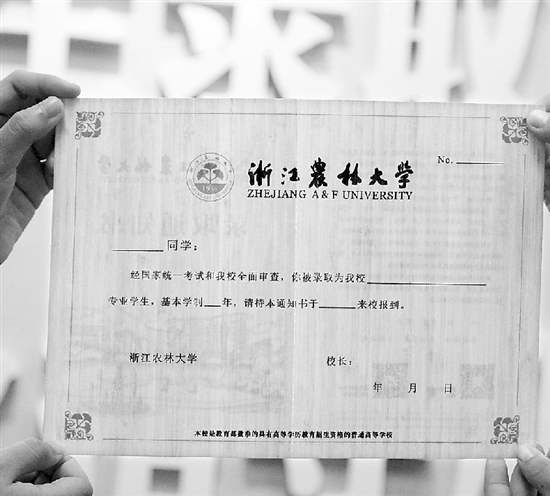 No. ______
浙江农林大学
ZHEJIANG A & F UNIVERSITY
______同学：
经国家统一考试和我校全面审查，你被录取为我校______
专业学生，基本学制___年，请持本通知书于______来校报到。
浙江农林大学
校长：
年 月 日
本校是教育部批准的具有高等学历教育招生资格的普通高等学校